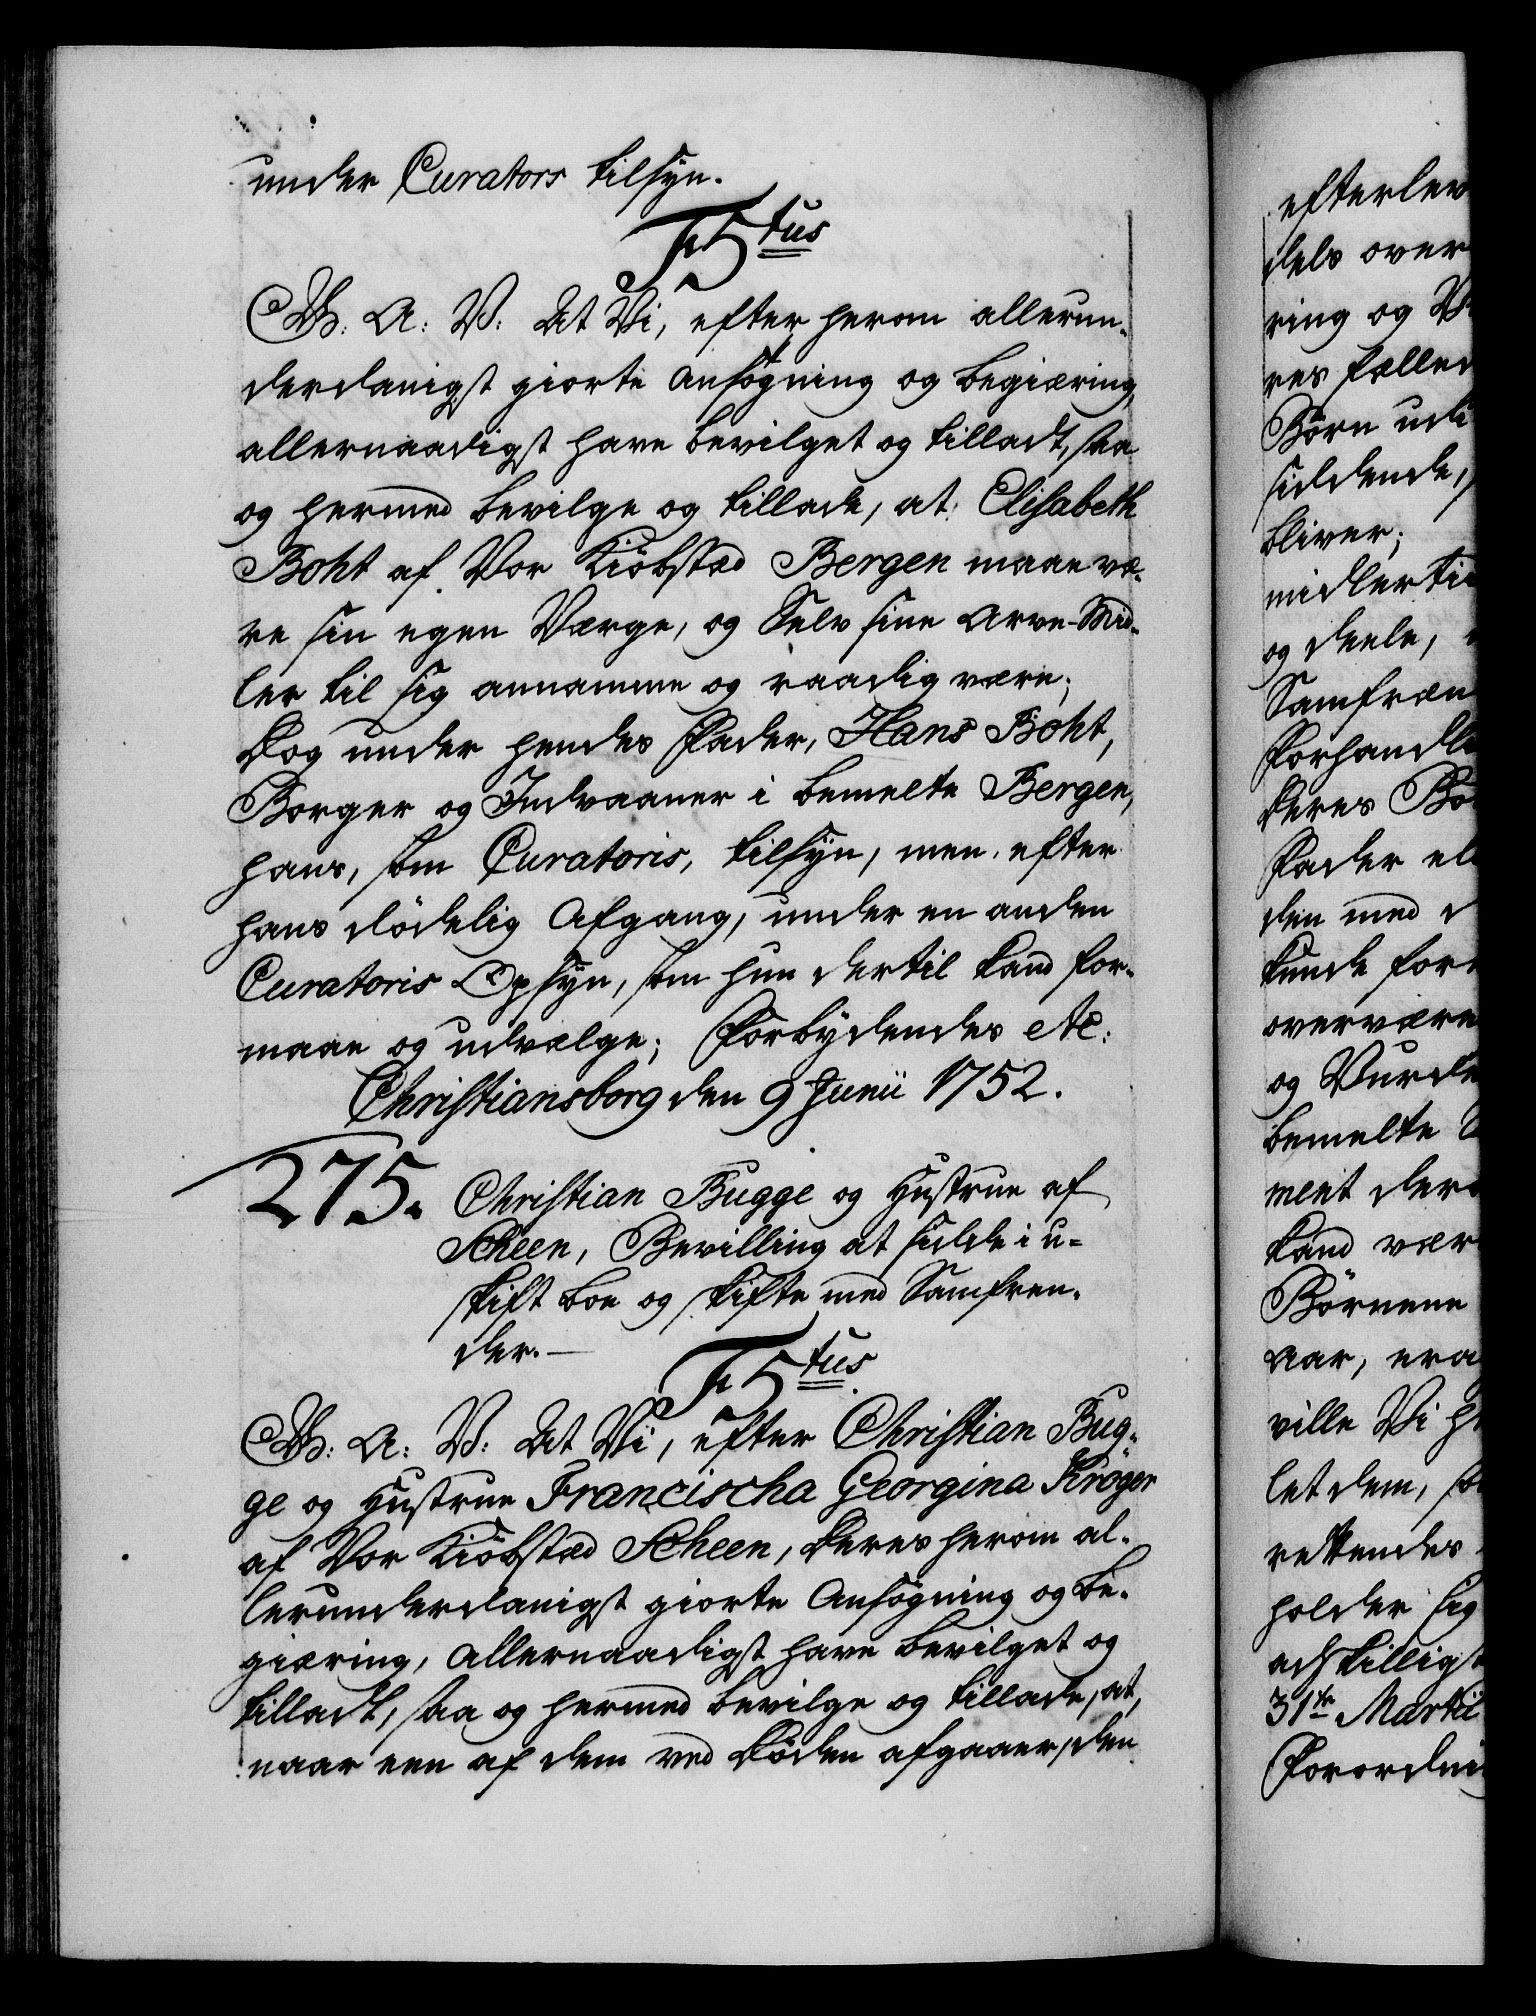 under Curators tilsyn.
F5tus
G: A: V: At Vi, efter herom allerun-
derdanigst giorte Ansøgning og begiæring,
allernaadigst have bevilget og tilladt, saa
og hermed bevilge og tillade, at Elisabeth
Boht af Vor Kiöbstæd Bergen maae væ-
re sin egen Værge, og Selv sine Arve-Mid-
ler til sig annamme og raadig være;
Dog under hendes Fader, Hans Boht,
Borger og Indvaaner i bemelte Bergen,
hans, som Curatoris, tilsÿn, men efter
hans dödelig Afgang, under en anden
Curatoris Opsÿn, som hun dertil kand for-
maae og udvælge; Forbÿdendes etc:
Christiansborg den 9 Junii 1752.
275. Christian Bugge og Hustrue af
Scheen, Bevilling at sidde i u-
skift boe og skifte med Samfren-
der.
F5tus
G: A: V: At Vi, efter Christian Bug-
ge og Hustrue Francischa Georgina Kröger
af Vor Kiöbstæd Scheen, deres herom al-
lerunderdanigst giorte Ansøgning og be-
giæring, Allernaadigst have bevilget og
tilladt, saa og hermed bevilge og tillade, at,
naar een af dem ved Döden afgaaer, den
efterlev
dels over
ring og V
res fælled
Börn udi
siddende,
bliver;
midlertid
og deele,
Samfræn
Forhandl
deres Bo
Fader el
den med d
kunde for
overvære
og Vurde
bemelte S
ment der
kand vær
Börnene
Aar, era
ville Vi h
let dem, so
rettendes
holder sig
ach tilligst
31te Martii
Forordni